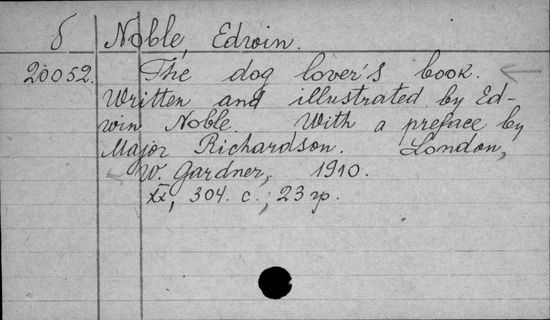 б Noble, Edwin.
20052. The dog lover's book.
Written and illustrated by Ed-
win Noble. With a preface by
Major Richardson. London,
W. Gardner, 1910.
XX, 304. с.; 23 гр.